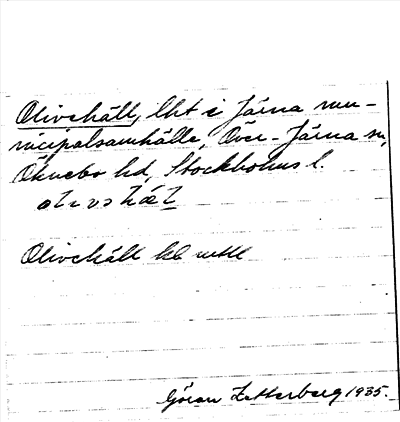 Olivehäll, lht i Järna mu-
nicipalsamhälle, Över-Järna sn,
Öknebo hd, Stockholms l.
Olivehäll
Göran Zetterberg 1935.